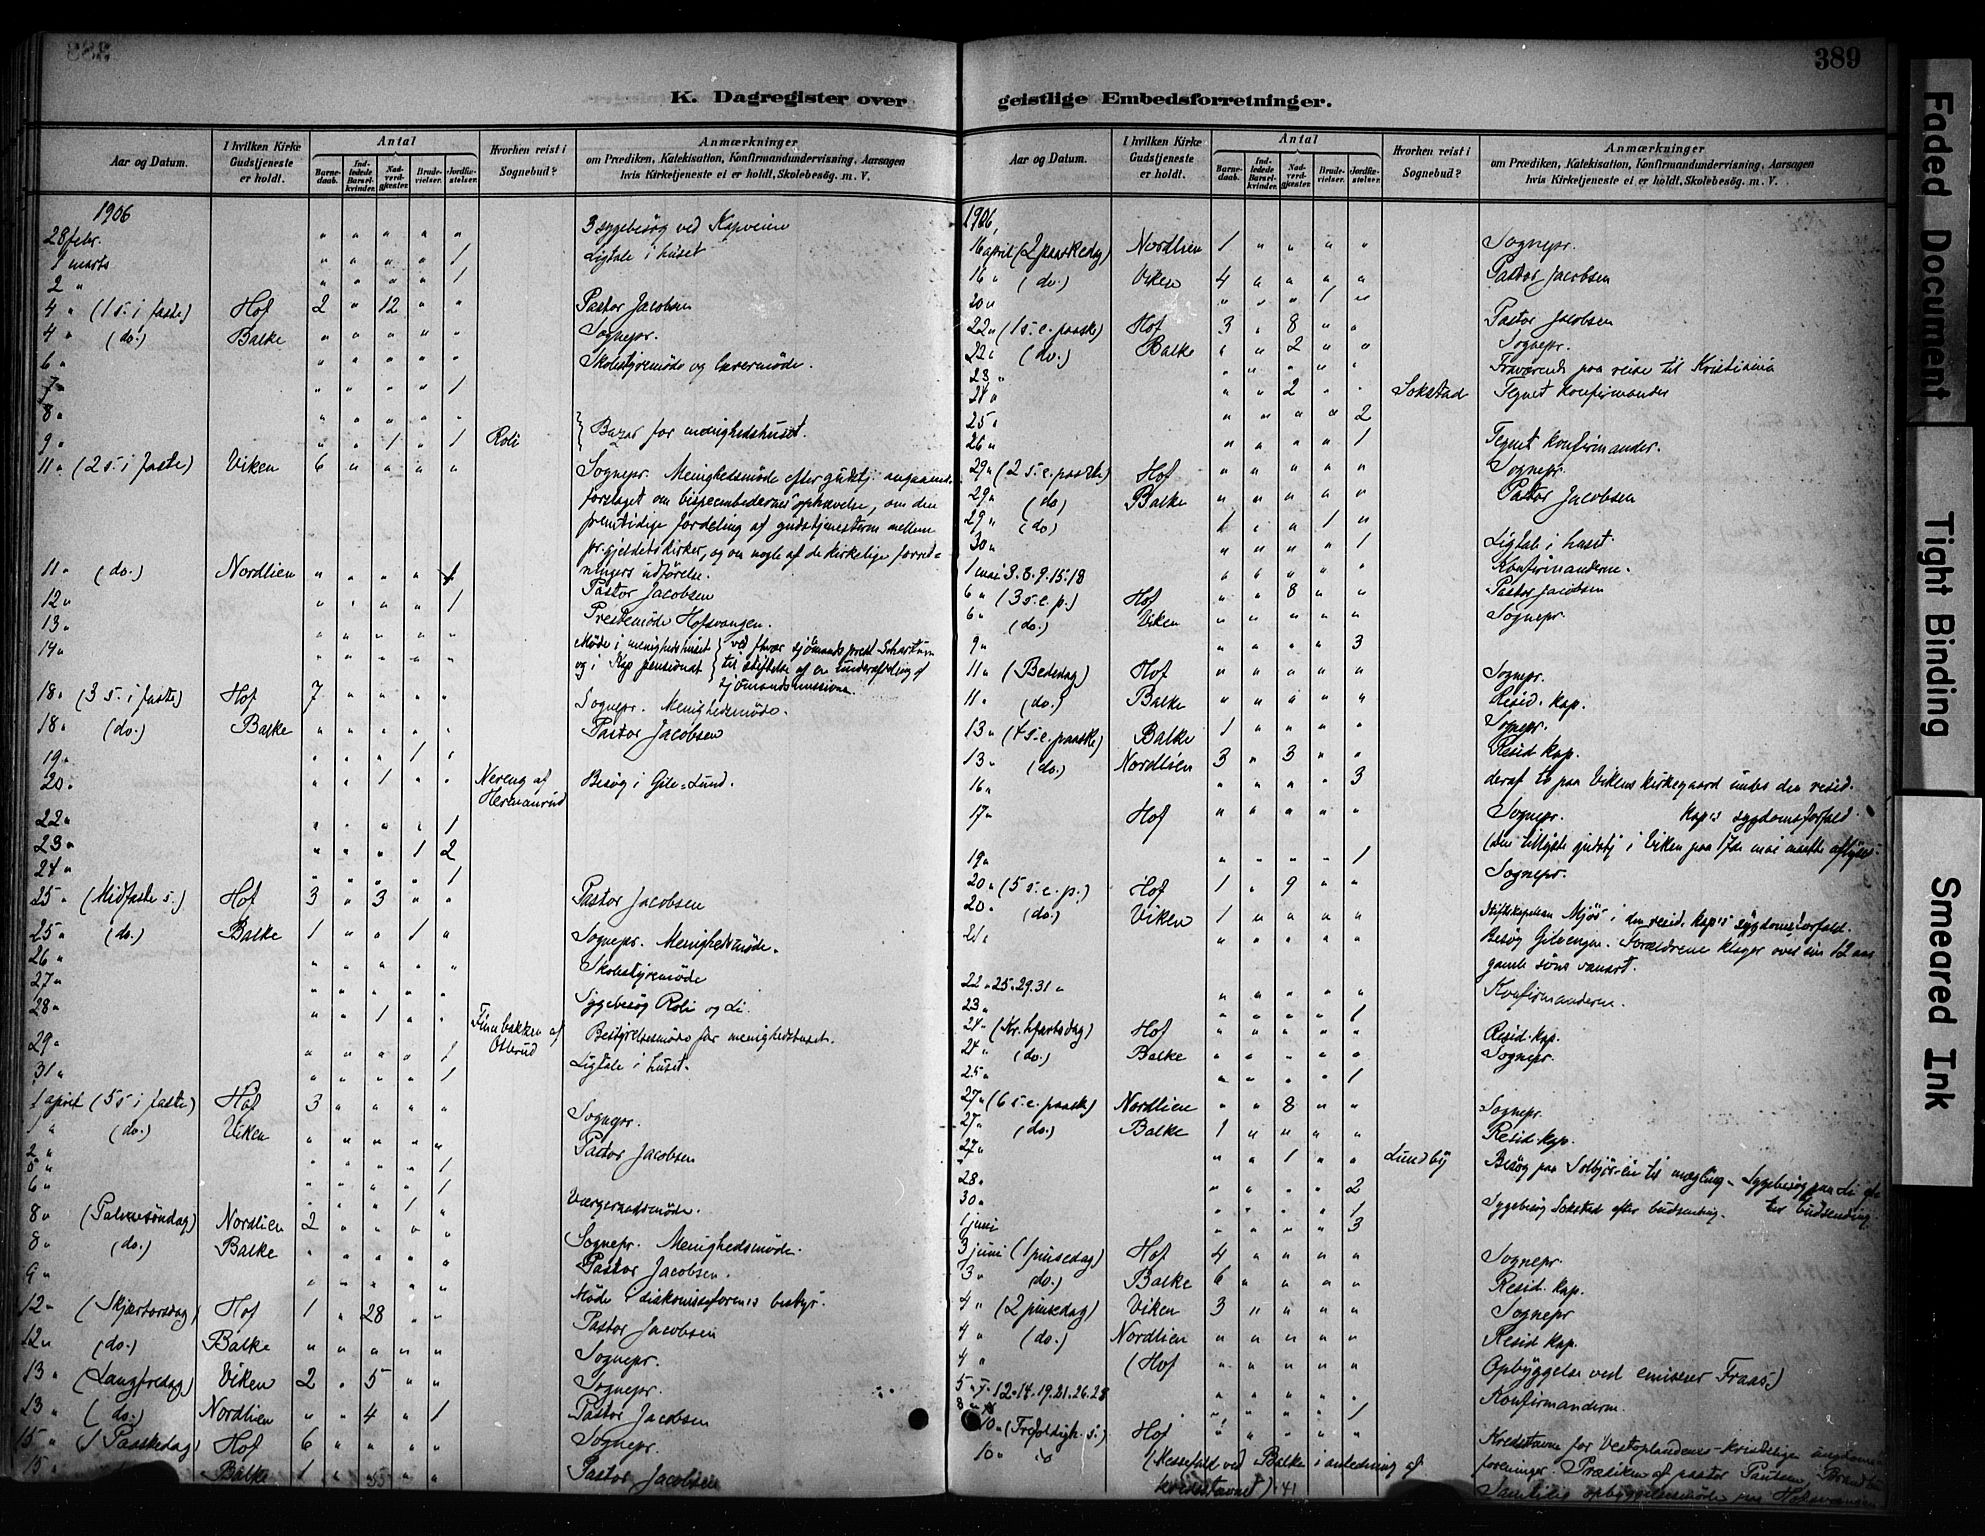 388
389
K. Dagregister over geistlige Embedsforretninger.
Aar og Datum. I hvilken Kirke Gudstjeneste er holdt. Antal Barnedaab. Indledede Barselkvinder. Nadverdgjester. Brudevielser. Jordfæstelser. Hvorhen reist i Sognebud? Anmærkninger om Prædiken, Katekisation, Konfirmandundervisning, Aarsagen hvis Kirketjeneste ei er holdt, Skolebesög. m. V.
1906
28 febr. " " " " " 3 sygebesög ved Kapveien
1 marts " " " " 1 Ligtale i huset
2 " " " " " 1
4 " (1 s. i faste) Hof 2 " 12 " " Pastor Jacobsen
4 " (do.) Balke " " " " " Sognepr.
6 " " " " " " Skolestyremöde og lærermöde.
7 " " " " " 1
8 " " " " " "
9 " " " 1 " 1 Roli } Bazar for menighedshuset.
11 " (2 s. i faste) Viken 6 " " " " Sognepr. Menighedsmöde efter gudstj. angaaende
forslaget om bispeembedernes ophævelse, om den
fremtidige fordeling af gudstjenesterne mellem
pr.gjeldets kirker, og om nogle af de kirkelige forret-
ningers udförelse.
11 " (do.) Nordlien " " " " 1 Pastor Jacobsen
12 " " " " " 1 Prestemöde Hofsvangen.
13 " " " " " "
14 " " " " " " Möde i menighedshuset } ved
og i Kap pensionat } til stiftelse af en underafdeling af
sjömandsmissionen
18 " (3 s. i faste) Hof 7 " " " " Sognepr. Menighedsmöde.
18 " (do.) Balke " " " " " Pastor Jacobsen
19 " " " " 1 "
20 " " " 1 " " Nereng af Hermanrud Besög i Gile-Lund.
22 " " " " " 1
23 " " " " 1 2
24 " " " " " 1
25 " (Midfaste s.) Hof 3 " 3 " " Pastor Jacobsen
25 " (do.) Balke 1 " " 1 " Sognepr. Menighedsmöde.
26 " " " " " " Skolestyremöde
27 " " " " " " Sygebesög Roli og Li
28 " " " 1 " " Finnbakken af Osbrud Bestyrelsesmöde for menighedshuset.
29 " " " " " 1 Ligtale i huset.
31 " " " " " 1
1 april (5 s i faste) Hof 3 " " " " Sognepr.
1 " (do.) Viken " " " " " Pastor Jacobsen
2 "
5 " " " " " 1
6 " " " " " 1
" " " 1 " Værgeraadsmöde.
8 " (Palmesöndag) Nordlien 2 " " " " Sognepr. Menighedsmöde.
8 " (do.) Balke " " " " " Pastor Jacobsen.
9 " " " " " " Möde i diakonissforenis bestyr.
12 " (Skjærtorsdag) Hof 1 " 28 " " Pastor Jacobsen
12 " (do.) Balke " " " " " Sognepr.
13 " (Langfredag) Viken 2 " 5 " " Sognepr.
13 " (do.) Nordlien " " 4 " 1 Pastor Jacobsen
15 " (1 Paaskedag) Hof 6 " " " " Sognepr.
15 " Balke 1 " 55 " " Pastor Jacobsen
Aar og Datum. I hvilken Kirke Gudstjeneste er holdt. Antal Barnedaab. Indledede Barselkvinder. Nadverdgjester. Brudevielser. Jordfæstelser. Hvorhen reist i Sognebud? Anmærkninger om Prædiken, Katekisation, Konfirmandundervisning, Aarsagen hvis Kirketjeneste ei er holdt, Skolebesög. m. V.
1906,
16 april (2 paaskedag) Nordlien 1 " " " " Sognepr.
16 " (do.) Viken 4 " " " " Pastor Jacobsen
20 " " " " 1 "
22 " (1 s. e. paaske) Hof 3 " 8 " " Pastor Jacobsen
22 " (do.) Balke " " 2 " " Sognepr.
23 " " " " " " Fraværende paa reise til Kristiania
24 " " " 2 " " Sokstad Tegnet konfirmander
25 " " " " " 2
26 " " " " " 1 Tegnet konfirmander.
29 " (2 s. e. paaske) Hof " " " " " Sognepr.
29 " (do) Balke " " " " " Pastor Jacobsen
29 " (do) " " 1 "
30 " " " " " 1 Ligtale i huset.
1 mai 3. 8. 9. 15. 18 " " " " " Konfirmanderne.
6 " (3 s. e. p.) Hof " " 8 " " Pastor Jacobsen
6 " (do.) Viken " " " " " Sognepr.
9 " " " " " 3
11 " (Bededag) Hof " " " " " Sognepr.
11 " (do.) Balke " " " " " Resid. kap.
13 " (4 s. e. paaske) Balke 1 " " " " Sognepr.
13 " (do.) Nordlien 3 " 3 " " Resid kap.
16 " " " " " 3 deraf to paa Vikens kirkegaard under den resid.
kap.s sygdomsforfald.
17 " Hof " " " " " Sognepr.
(den tillyste gudstj i Viken paa 17de mai maatte aflyses.
19 " " " " " 1
20 " (5 s. e. p.) Hof 1 " 9 " " Sognepr.
20 " (do.) Viken 1 " " " " Stiftskapellan Mjös i den resid. kap.s sygdomsforfald.
21 " " " " " " Besög Gilevangen. Forældrene klager over sin 12 aar
gamle söns vanart.
22 " 25. 29. 31 " " " " " " Konfirmanderne.
23 " " " " " 1
24 " (Kr. hfartsdag) Hof " " " " " Resid. kap.
24 " (do.) Balke " " " " " Sognepr.
25 " " " " " 1
27 " (6 s. e. paaske) Nordlien " " 8 " " Sognepr.
27 " (do.) Balke 1 " " " " Resid. kap.
27 " " " 1 " " Lundby Besög paa til mægling. Sygebesög paa Li ef-
ter budsending.
28 " " " " " 2
30 " " " " " 1 Sygebesög Sokstad efter budsending.
1 juni " " " " 3
3 juni (1 pinsedag) Hof 4 " " " " Sognepr.
3 " (do.) Balke 6 " " " " Resid. kap.
4 " (2 pinsedag) Viken 3 " " " " Sognepr
4 " (do.) Nordlien " " " " " Resid kap.
4 " (Hof " " " " " Opbyggelse ved emissær Fraas)
5 " 7. 12. 14. 19. 21. 26. 28 " " " " " Konfirmanderne.
8 " " " " " 1
10 " (Trefoldigh. s.) Hof " " " " " Kredsstævne for Vestoplandenes kristelige ungdoms-
10 " do (Messefald ved Balke i anledning af foreninger. Prædiken af pastor Paulsen,
kredsstævnet) Samtidig opbyggelsesmöde paa Hofsvangen
Faded Document
Tight Binding
Smeared Ink